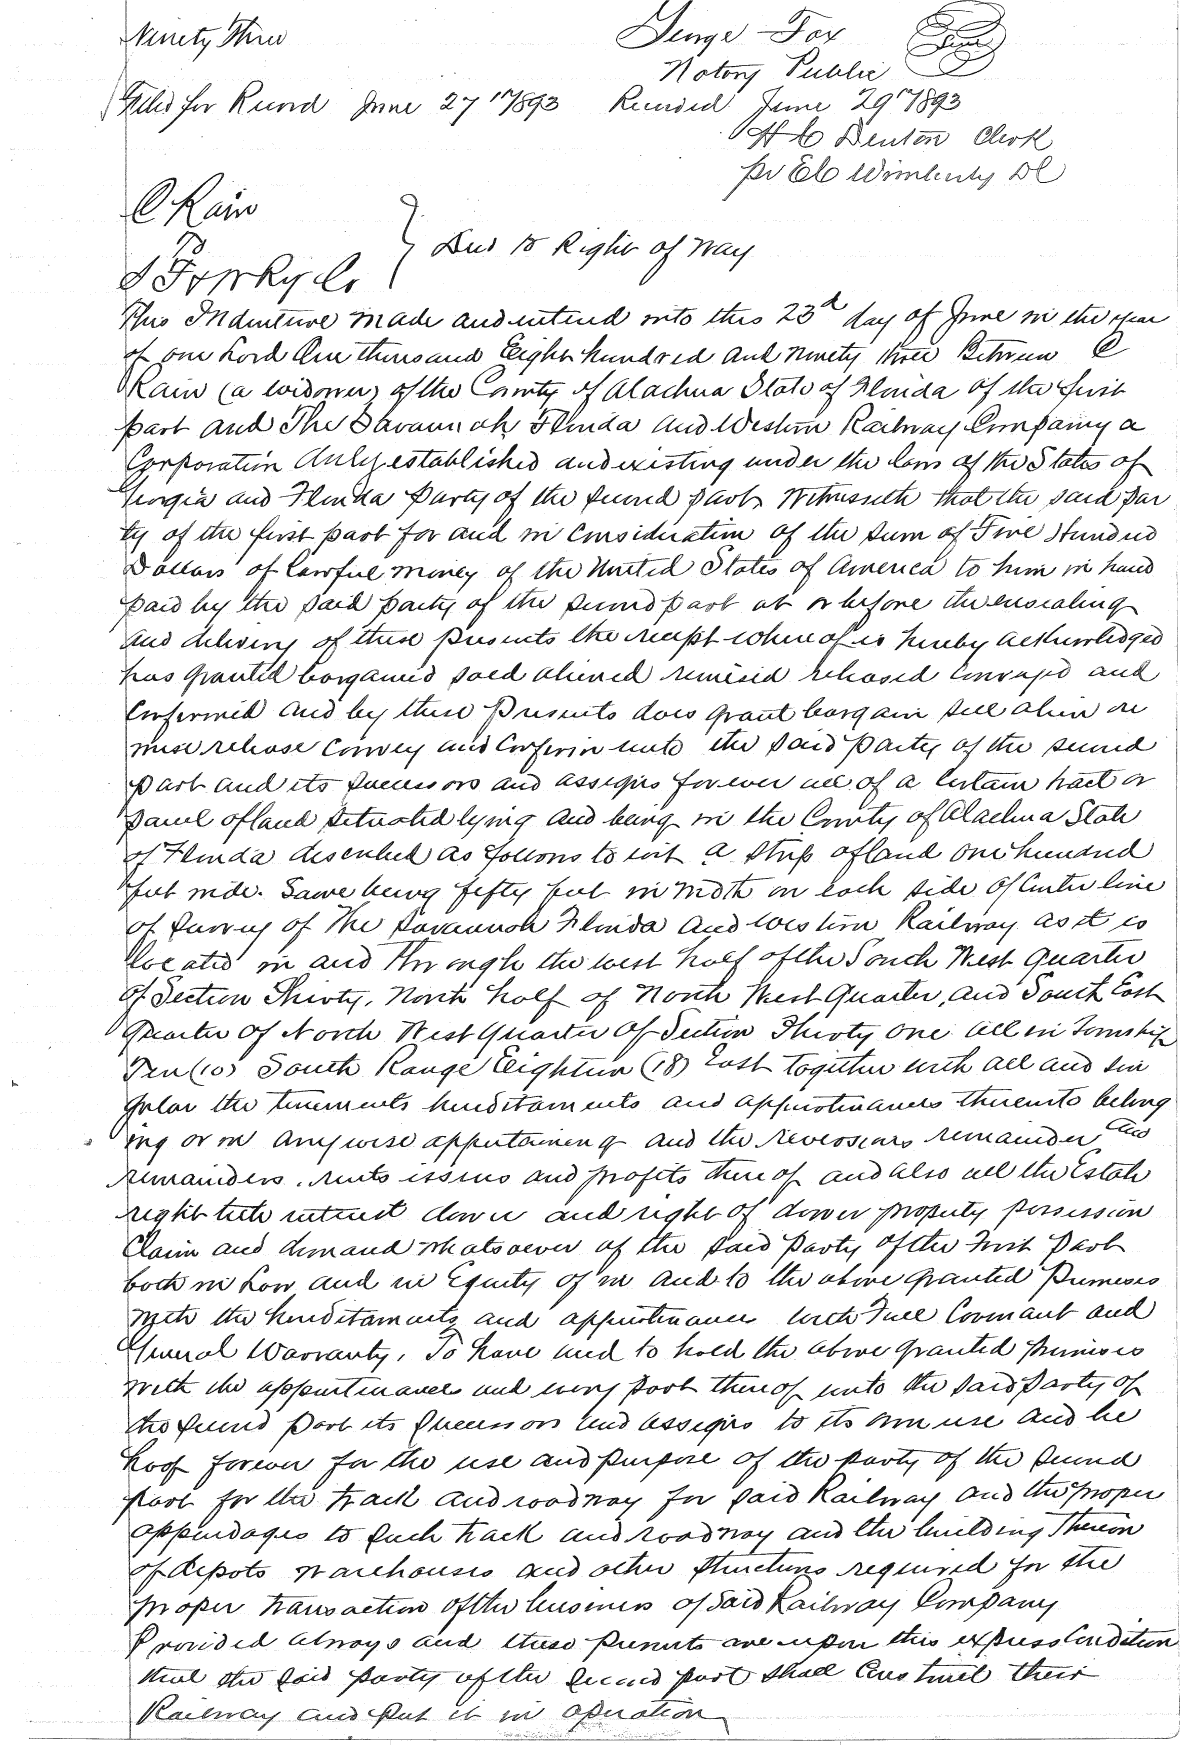 Ninety Three
George Fox
Notary Public
Filed for Record June 27" 1893 Recorded June 29" 1893
H C Denton Clerk
pr E C Wimberly DC
C Rain
To
S F & W Ry Co
Deed to Right of Way
This Indenture made and entered into this 23d day of June in the year
of our Lord One thousand Eight hundred and ninety three Between C
Rain (a widower) of the County of Alachua State of Florida of the first
part and The Savannah Florida and Western Railway Company a
Corporation duly established and existing under the laws of the States of
Georgia and Florida Party of the second part. Witnesseth that the said par
ty of the first part for and in consideration of the sum of Five Hundred
Dollars of lawful money of the United States of America to him in hand
paid by the said party of the second part at or before the ensealing
and delivery of these presents the receipt whereof is hereby acknowledged
has granted bargained sold aliened remised released conveyed and
Confirmed and by these Presents does grant bargain sell alien re
mise release convey and confirm unto the said Party of the second
part and its successors and assigns forever all of a certain tract or
parcel of land situated lying and being in the County of Alachua State
of Florida described as follows to wit a strip of land one hundred
feet wide. Same being fifty feet in width on each side of center line
of survey of The Savannah Florida and Western Railway as it is
located in and through the west half of the South West Quarter
of Section Thirty, North half of North West Quarter, and South East
Quarter of North West Quarter of Section Thirty One all in Township
Ten (10) South Range Eighteen (18) East together with all and sin
gular the tenements hereditaments and appurtenances thereunto belong
ing or in anywise appertaining and the reversions remainder and
remainders, rents issues and profits thereof and also all the Estate
right title interest dower and right of dower property possession
Claim and demand whatsoever of the said Party of the First Part
both in Law and in Equity of in and to the above granted Premises
with the hereditaments and appurtenances with Full Covenant and
General Warranty, To have and to hold the above granted premises
with the appurtenances and every part thereof unto the said party of
the second part its successors and assigns to its own use and be
hoof forever for the use and purpose of the party of the second
part for the track and roadway for said Railway and the proper
appendages to such track and roadway and the building thereon
of depots warehouses and other structures required for the
proper transaction of the business of said Railway Company
Provided always and these presents are upon this express condition
that the said party of the second part shall construct their
Railway and put it in operation